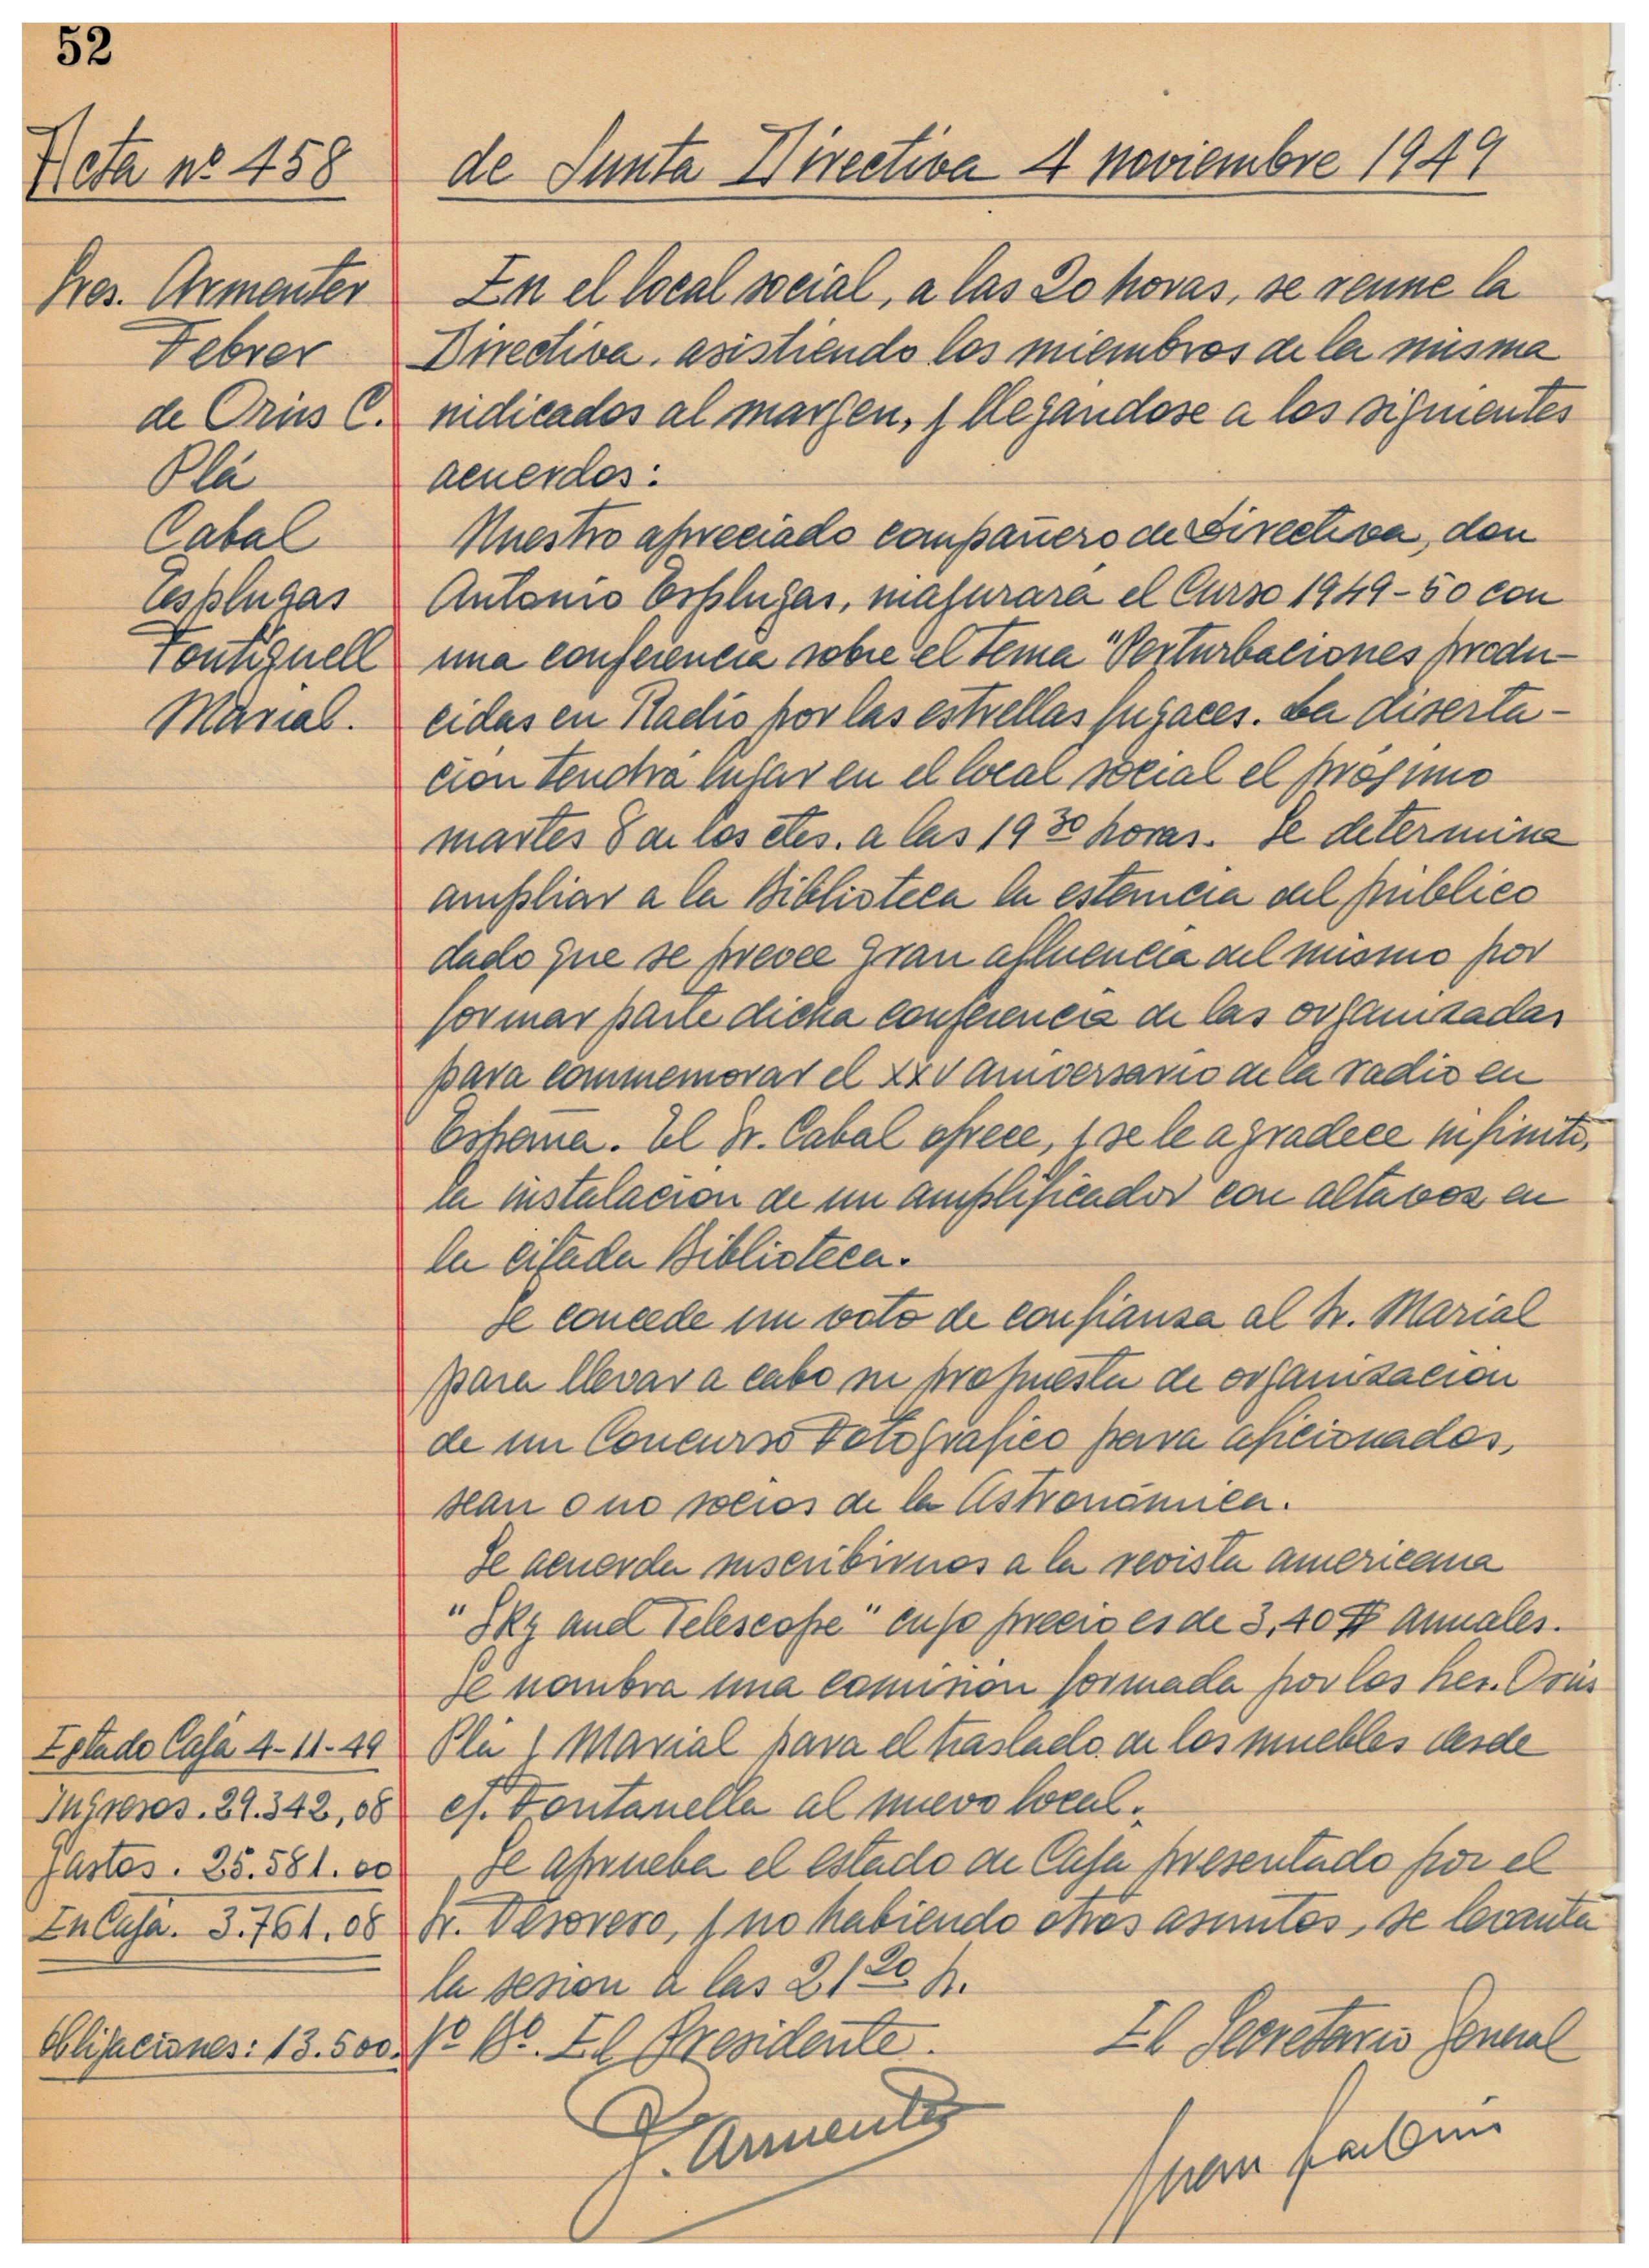 52
Acta nº 458
de Junta Directiva 4 noviembre 1949
Pres. Armenter
Febrer
de Orús C.
Plá
Cabal
Esplugas
Fontiguell
Marial.
En el local social, a las 20 horas, se reune la
Directiva. asistiendo los miembros de la misma
indicados al margen, y llegándose a los siguientes
acuerdos:
Nuestro apreciado compañero de Directiva, don
Antonio Esplugas, inagurará el Curso 1949-50 con
una conferencia sobre el tema "Perturbaciones produ-
cidas en Radio por las estrellas fugaces. La diserta-
ción tendrá lugar en el local social el próximo
martes 8 de los ctes. a las 19 30 horas. Se determina
ampliar a la Biblioteca la estancia del público
dado que se prevee gran afluencia del mismo por
formar parte dicha conferencia de las organizadas
para commemorar el XXV aniversario de la radio en
España. El Sr. Cabal ofrece, y se le agradece infinito,
la instalación de un amplificador con altavoz en
la citada Biblioteca.
Se concede un voto de confianza al Sr. Marial
para llevar a cabo su propuesta de organización
de un Concurso Fotográfico para aficionados,
sean o no socios de la Astronómica.
Se acuerda suscribirnos a la revista americana
"Sky and Telescope" cuyo precio es de 3,40 $ anuales.
Se nombra una comisión formada por los Sres. Orús
Plá y Marial para el traslado de los muebles desde
c/. Fontanella al nuevo local.
Se aprueba el estado de Caja presentado por el
Sr. Tesorero, y no habiendo otros asuntos, se levanta
la sesión a las 21 20 h.
Estado Caja 4-11-49
Ingresos. 29.342,08
Gastos. 25.581.00
En Caja. 3.761,08
Obligaciones: 13.500.
Vº Bº. El Presidente.
El Secretario General
J. Armenter